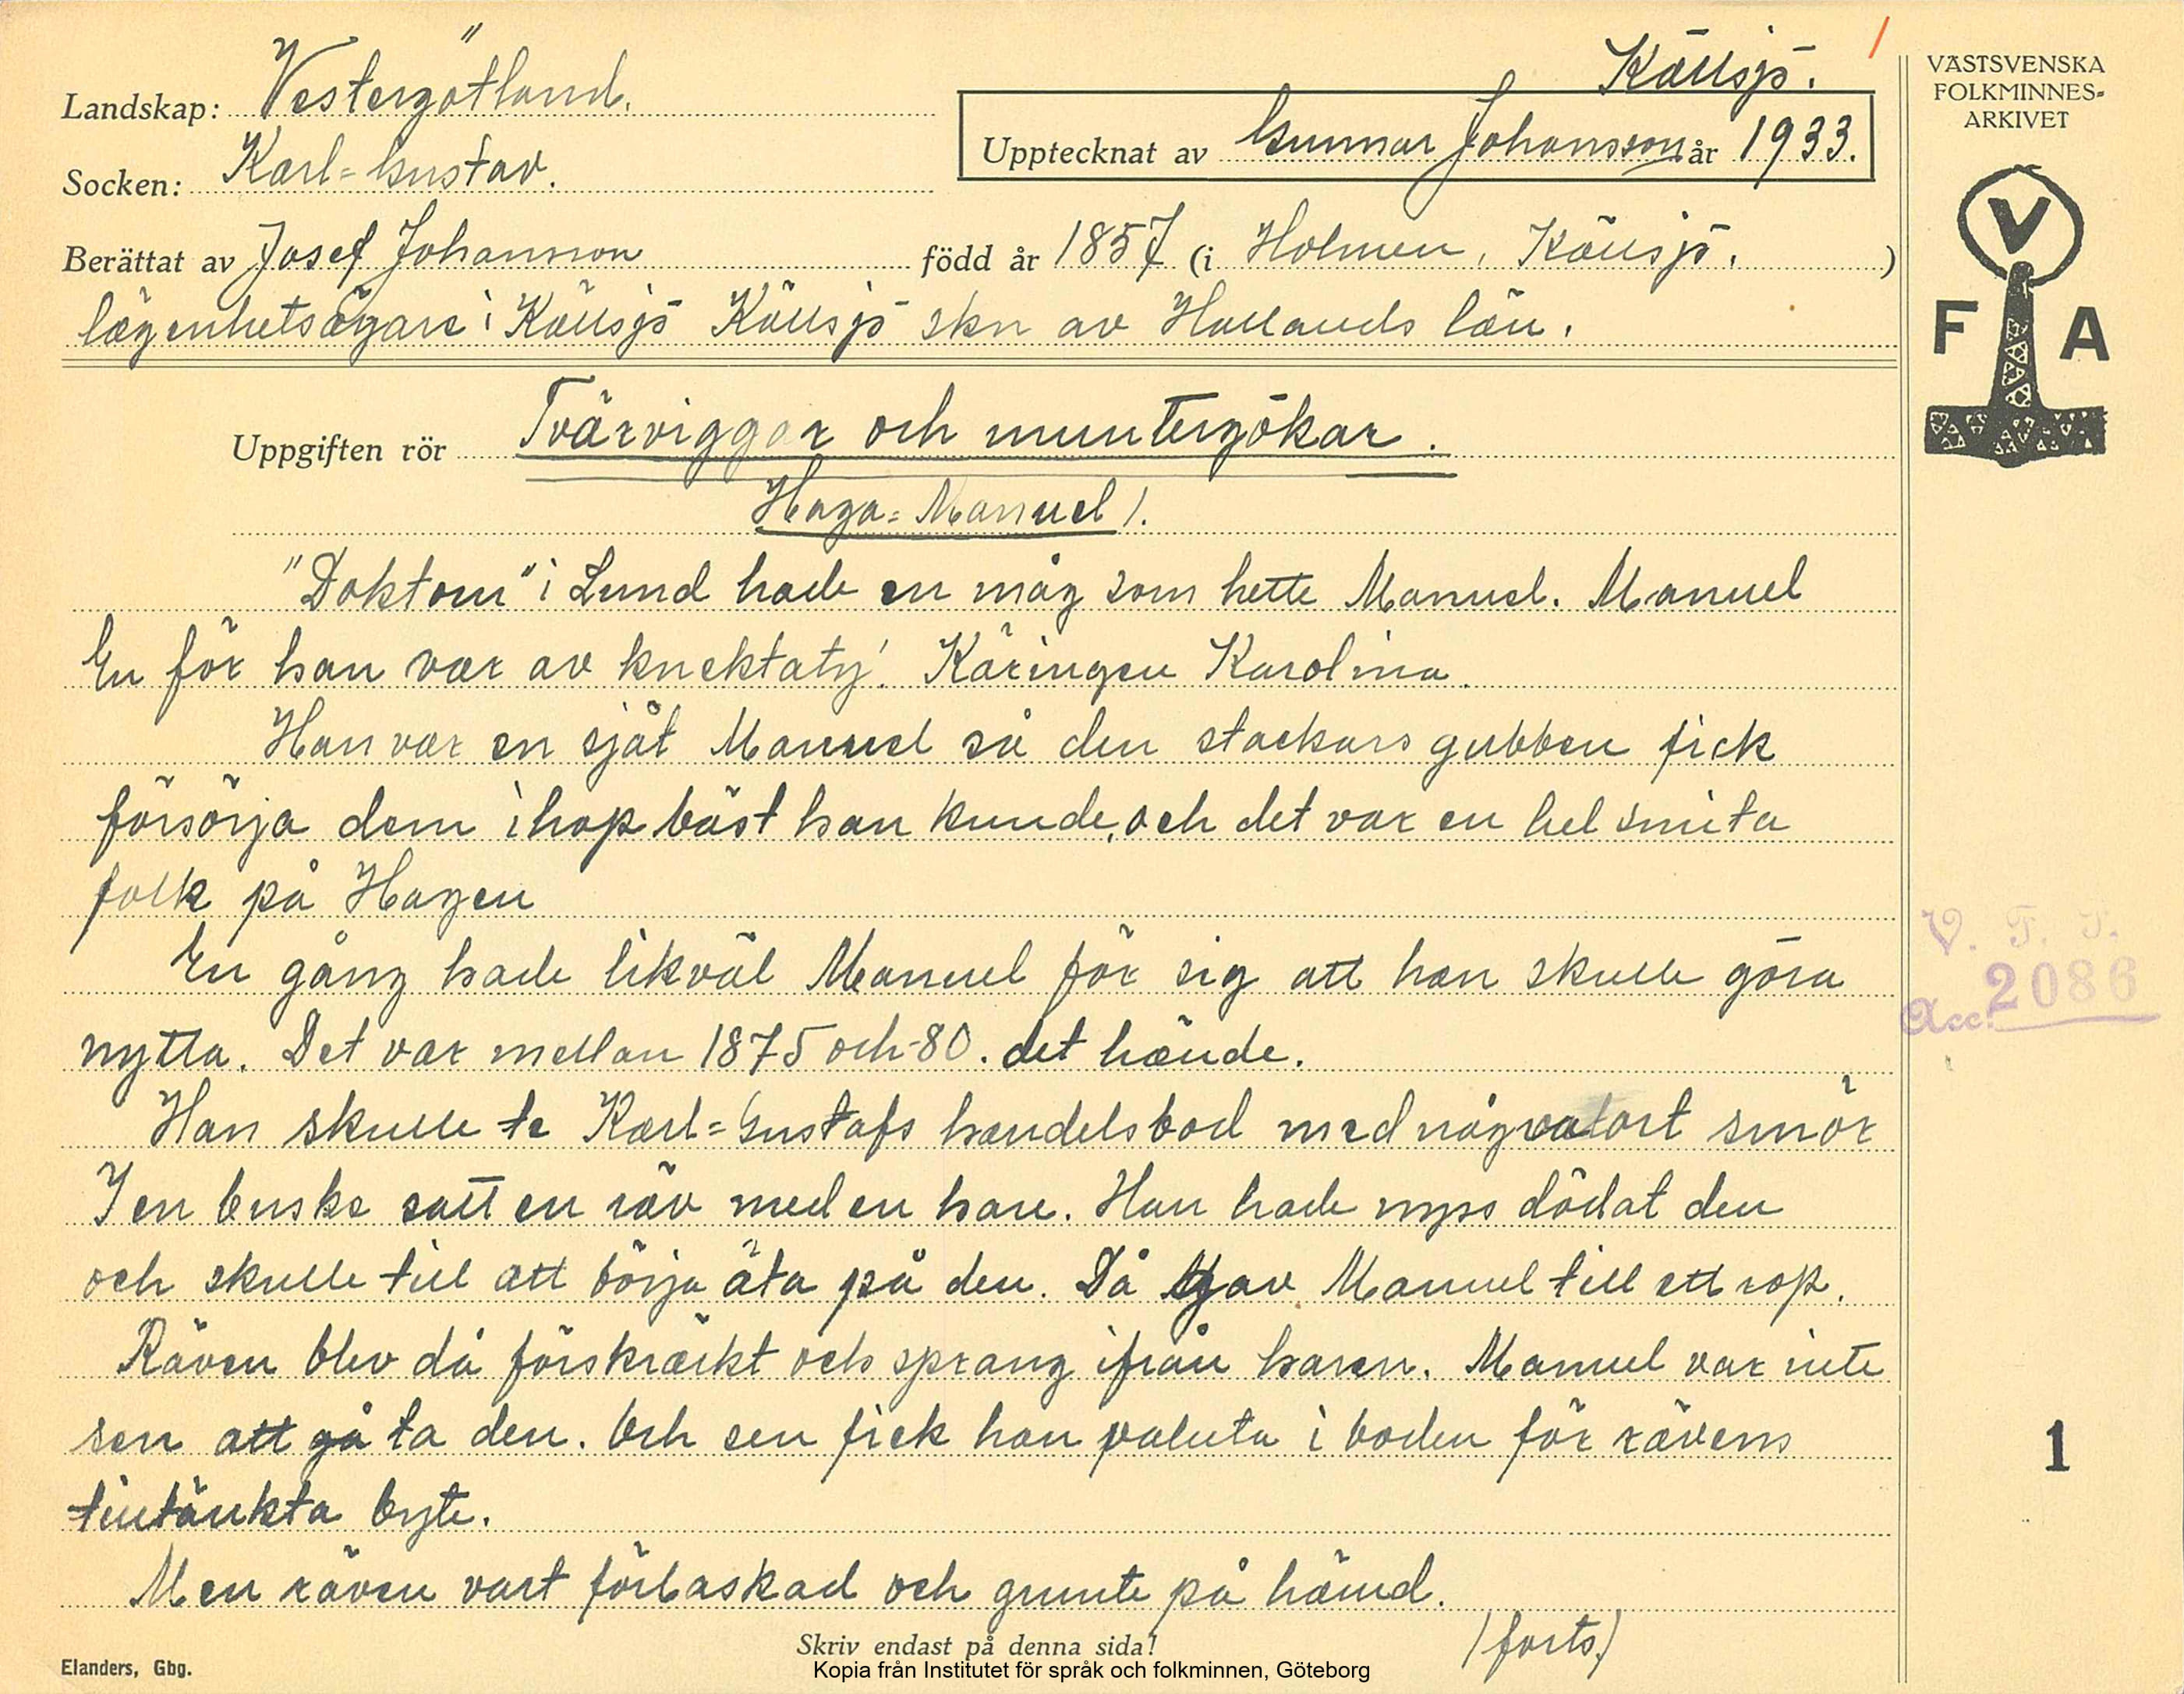 Källsjö.
Landskap: Vestergötland.
Upptecknat av Gunnar Johansson år 1933.
Socken: Karl-Gustav.
Berättat av Josef Johansson född år 1857 (i Holmen, Källsjö.)
lägenhetsägare i Källsjö Källsjö skn av Hallands län.
VÄSTSVENSKA
FOLKMINNES-
ARKIVET
V
F A
Uppgiften rör Tvärviggar och muntergökar.
Haga-Manuel 1.
"Doktorn" i Lund hade en måg som hette Manuel. Manuel
En för han var av knektaty! Käringen Karolina.
Han var en sjåt Manuel så den stackars gubben fick
försörja dem ihop bäst han kunde, och det var en hel smita
folk på Hagen
En gång hade likväl Manuel för sig att han skulle göra
nytta. Det var mellan 1875 och -80. det hände.
Han skulle te Karl-Gustafs handelsbod med smör
I en buske satt en räv med en hare. Han hade nyss dödat den
och skulle till att börja äta på den. Då gav Manuel till ett rop.
Räven blev då förskräckt och sprang ifrån haren. Manuel var inte
sen att gå ta den. Och sen fick han valuta i boden för rävens
tilltänkta byte.
Men räven vart förbaskad och grunte på hämd.
(forts.)
V. F. F.
Acc. 2086
1
Skriv endast på denna sida!
Elanders, Gbg.
Kopia från Institutet för språk och folkminnen, Göteborg